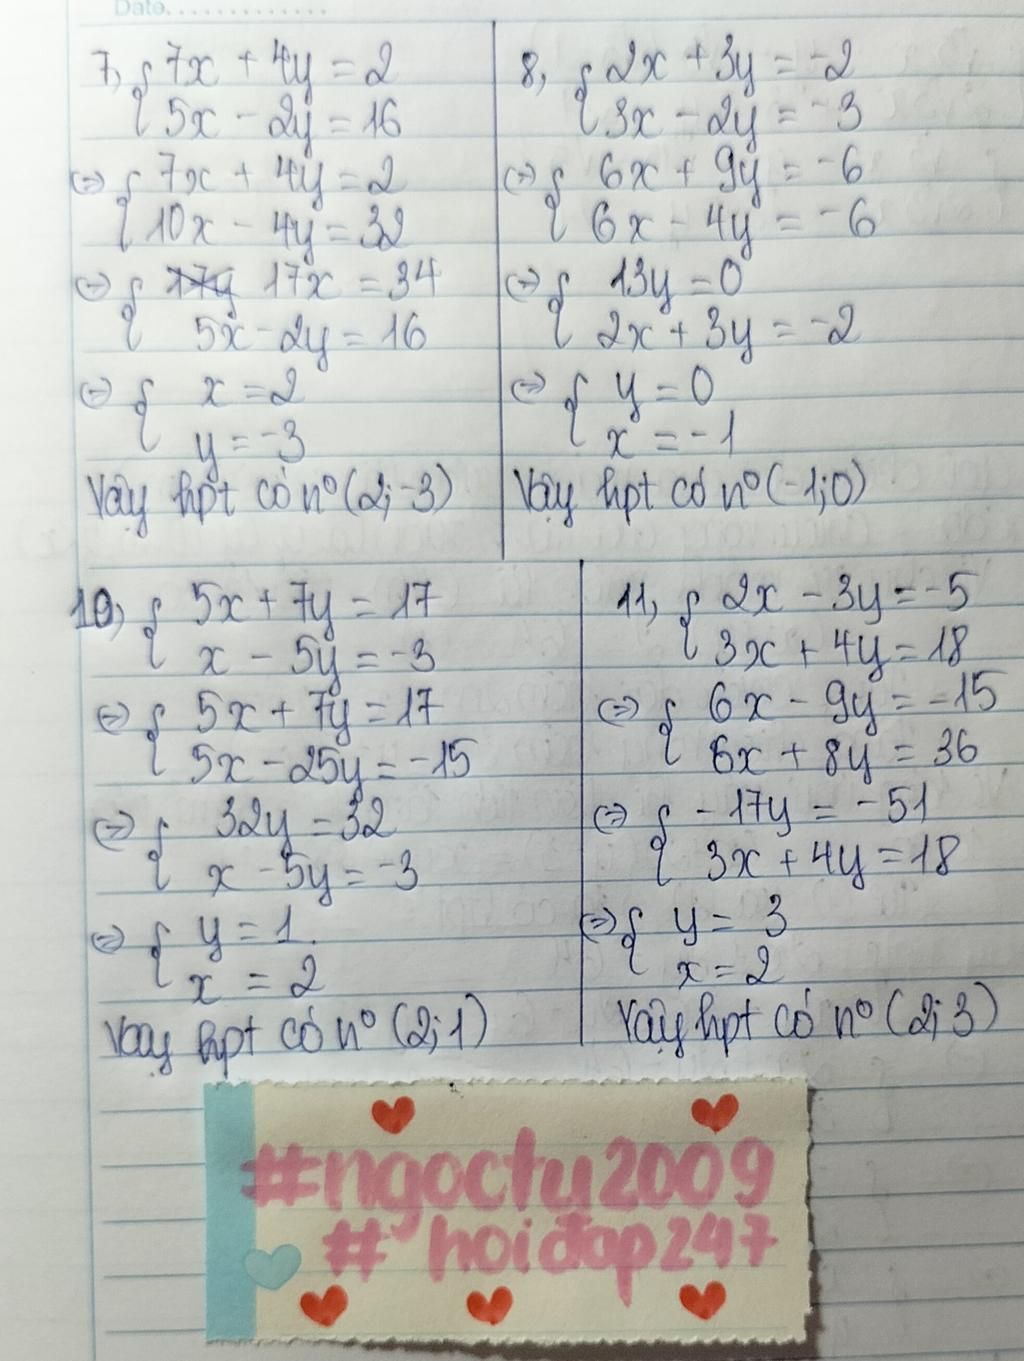 Date.............
7, { 7x + 4y = 2
5x - 2y = 16
<=> { 7x + 4y = 2
10x - 4y = 32
<=> { 17y 17x = 34
5x - 2y = 16
<=> { x = 2
y = -3
Vậy hpt có nº (2; -3)
8, { 2x + 3y = -2
3x - 2y = -3
<=> { 6x + 9y = -6
6x - 4y = -6
<=> { 13y = 0
2x + 3y = -2
<=> { y = 0
x = -1
Vậy hpt có nº (-1; 0)
10, { 5x + 7y = 17
x - 5y = -3
<=> { 5x + 7y = 17
5x - 25y = -15
<=> { 32y = 32
x - 5y = -3
<=> { y = 1.
x = 2
Vậy hpt có nº (2; 1)
11, { 2x - 3y = -5
3x + 4y = 18
<=> { 6x - 9y = -15
6x + 8y = 36
<=> { -17y = -51
3x + 4y = 18
<=> { y = 3
x = 2
Vậy hpt có nº (2; 3)
#ngoctu2009
# hoiđap247